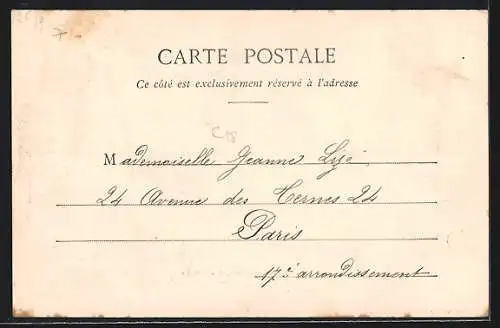 CARTE POSTALE
Ce côté est exclusivement réservé à l'adresse
C18
Mademoiselle Jeanne
24 Avenue des Ternes 24
Paris
17e arrondissement